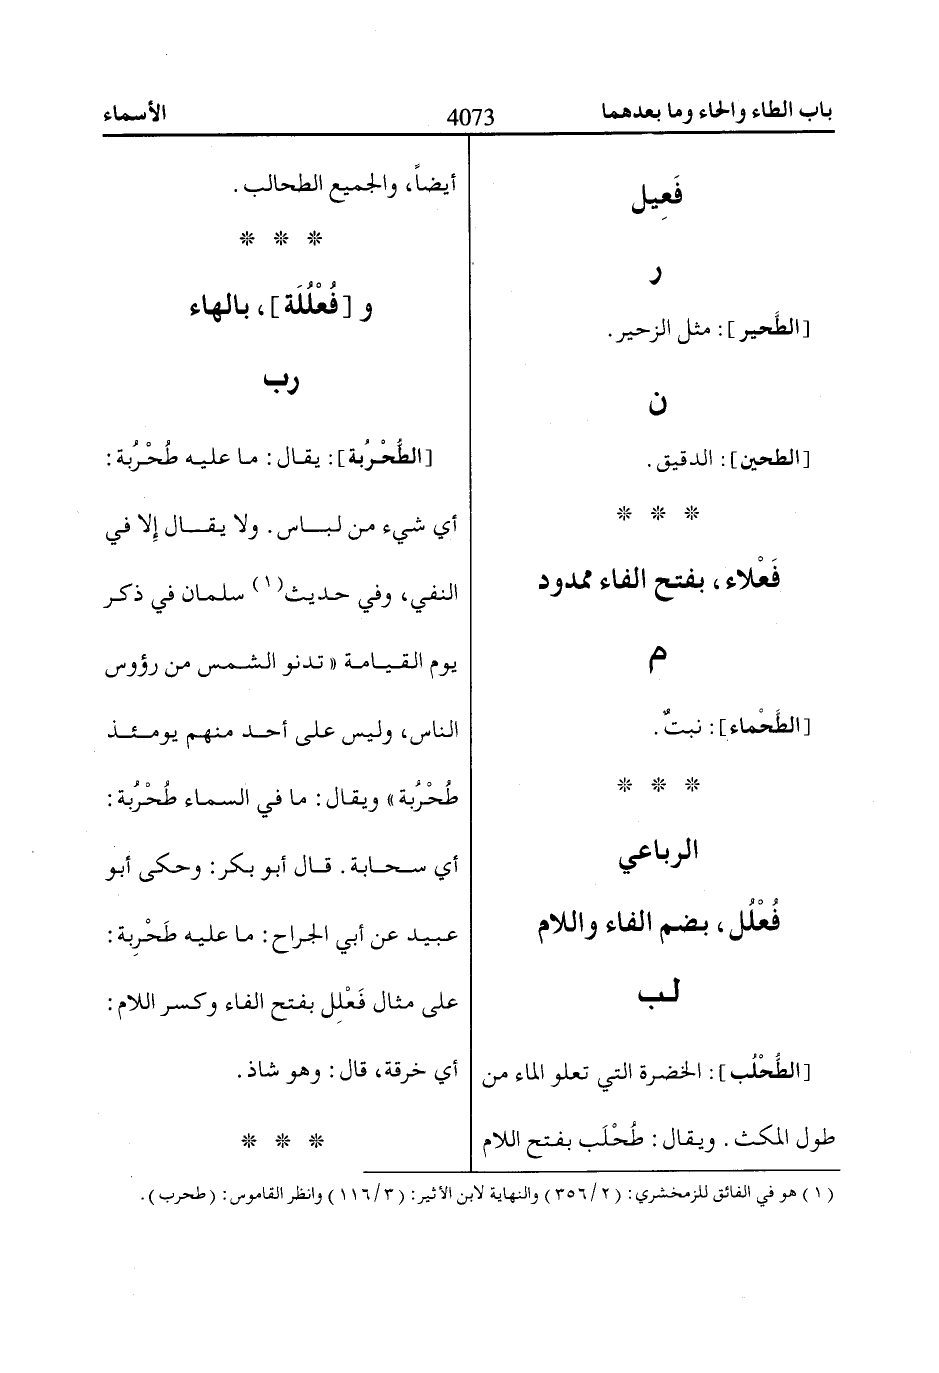 باب الطاء والحاء وما بعدهما 4073 الأسماء
فَعِيل
ر
[الطَّحير]: مثل الزحير.
ن
[الطحين]: الدقيق.
* * *
فَعْلاء، بفتح الفاء ممدود
م
[الطَّحْماء]: نبتٌ.
* * *
الرباعي
فُعْلُل، بضم الفاء واللام
لب
[الطُّحْلُب]: الخضرة التي تعلو الماء من
طول المكث. ويقال: طُحْلَب بفتح اللام
أيضاً، والجميع الطحالب.
* * *
و [فُعْلُلَة]، بالهاء
رب
[الطُّحْرُبة]: يقال: ما عليه طُحْرُبة:
أي شيء من لباس. ولا يقال إلا في
النفي، وفي حديث(١) سلمان في ذكر
يوم القيامة «تدنو الشمس من رؤوس
الناس، وليس على أحد منهم يومئذ
طُحْرُبة» ويقال: ما في السماء طُحْرُبة:
أي سحابة. قال أبو بكر: وحكى أبو
عبيد عن أبي الجراح: ما عليه طَحْرِبة:
على مثال فَعْلِل بفتح الفاء وكسر اللام:
أي خرقة، قال: وهو شاذ.
* * *
(١) هو في الفائق للزمخشري: (٢/٣٥٦) والنهاية لابن الأثير: (٣/١١٦) وانظر القاموس: (طحرب).